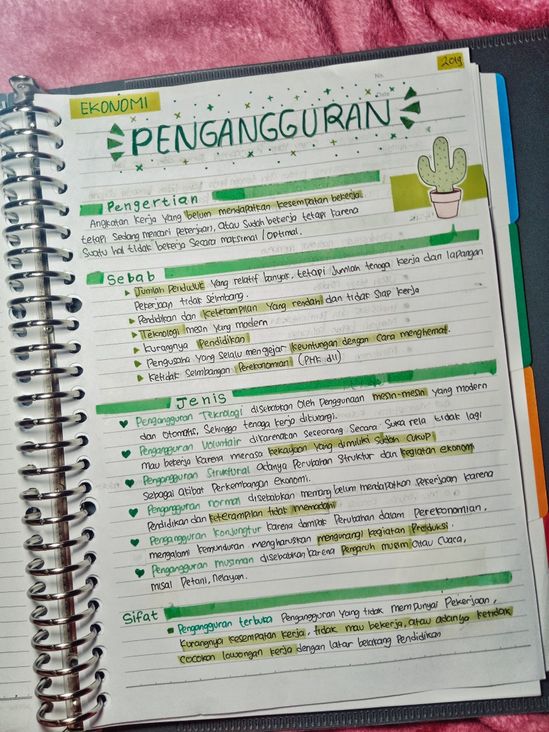 EKONOMI
2019
No.
Date
PENGANGGURAN
Pengertian
Angkatan kerja yang belum mendapatkan kesempatan bekerja,
tetapi sedang mencari pekerjaan, atau sudah bekerja tetapi karena
suatu hal tidak bekerja secara maksimal / optimal.
Sebab
Jumlah penduduk yang relatif banyak, tetapi jumlah tenaga kerja dan lapangan
pekerjaan tidak seimbang.
Pendidikan dan keterampilan yang rendah dan tidak siap kerja
Teknologi mesin yang modern
kurangnya Pendidikan
Pengusaha yang selalu mengejar keuntungan dengan cara menghemat.
ketidak seimbangan Perekonomian (PHK dll)
Jenis
Pengangguran Teknologi disebabkan oleh penggunaan mesin-mesin yang modern
dan otomatis, sehingga tenaga kerja dikurangi.
Pengangguran Voluntair dikarenakan seseorang secara suka rela tidak lagi
mau bekerja karena merasa kekayaan yang dimiliki sudah cukup
Pengangguran Struktural adanya perubahan struktur dan kegiatan ekonomi
sebagai akibat perkembangan ekonomi.
Pengangguran normal disebabkan memang belum mendapatkan pekerjaan karena
Pendidikan dan keterampilan tidak memadai
Pengangguran konjungtur karena dampak perubahan dalam perekonomian,
mengalami kemunduran mengharuskan mengurangi kegiatan Produksi.
Pengangguran musiman disebabkan karena Pengaruh musim atau cuaca,
misal Petani, nelayan.
Sifat
Pengangguran terbuka Pengangguran yang tidak mempunyai pekerjaan,
kurangnya kesempatan kerja, tidak mau bekerja, atau adanya ketidak
cocokan lowongan kerja dengan latar belakang Pendidikan